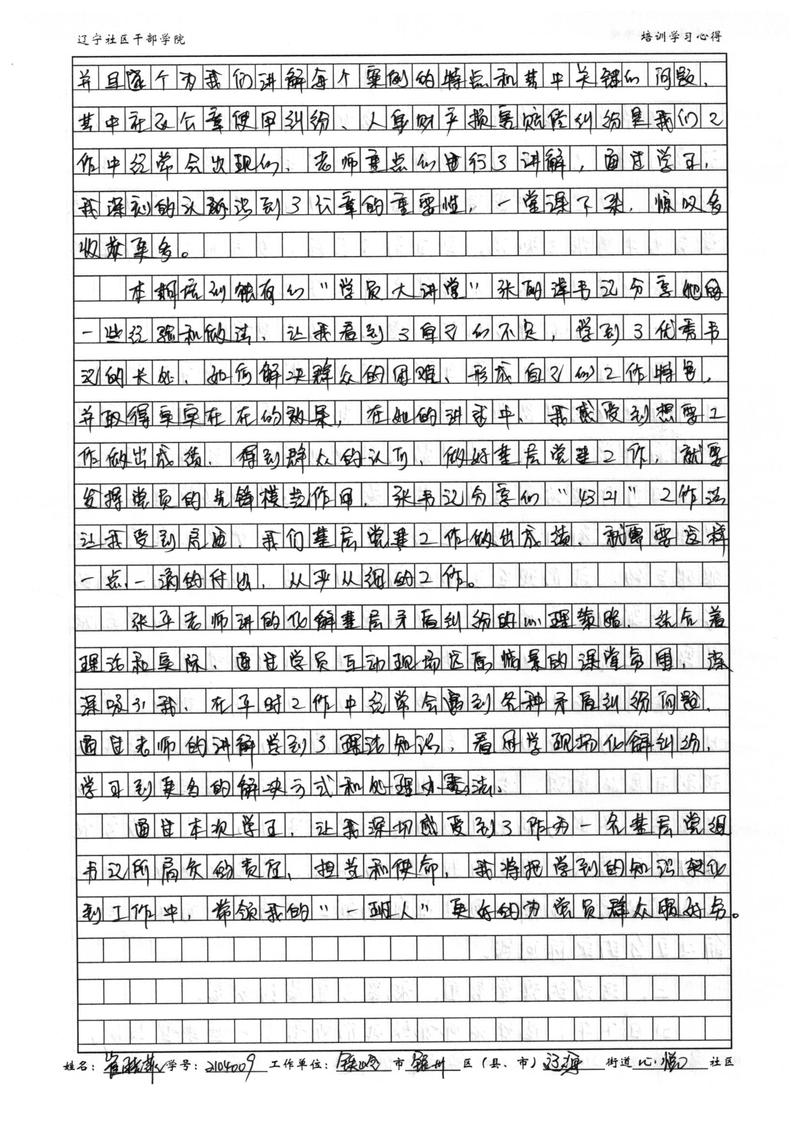 辽宁社区干部学院 培训学习心得
并且逐个为我们讲解每个案例的特点和其中关键的问题,
其中社区公章使用纠纷、人身财产损害赔偿纠纷是我们工
作中经常会出现的,老师重点的进行了讲解,通过学习,
我深刻的认识到了公章的重要性,一堂课下来,惊叹多
收获更多。
本期培训独有的“学员大讲堂”张丽泽书记分享她的
一些经验和做法,让我看到了自己的不足,学到了优秀书
记的长处,如何解决群众的困难、形成自己的工作特色,
并取得实实在在的效果,在她的讲话中,我感受到想要工
作做出成绩、得到群众的认可、做好基层党建工作,就要
发挥党员的先锋模范作用,张书记分享的“4321”工作法
让我受到启迪,我们基层党建工作做出成绩,就需要这样
一点一滴的付出,从严从细的工作。
张平老师讲的化解基层矛盾纠纷的心理策略,结合着
理论和实际,通过学员互动现场匹配情景的课堂氛围,深
深吸引我,在平时工作中经常会遇到各种矛盾纠纷问题,
通过老师的讲解学到了理论知识,看同学现场化解纠纷,
学习到更多的解决方式和处理办法。
通过本次学习,让我深切感受到了作为一名基层党组
书记所肩负的责任、担当和使命,我将把学到的知识转化
到工作中,带领我的“一班人”更好的为党员群众服好务。
姓名:崔 学号:2104009 工作单位:铁岭 市 银州 区(县、市) 辽海 街道 社区